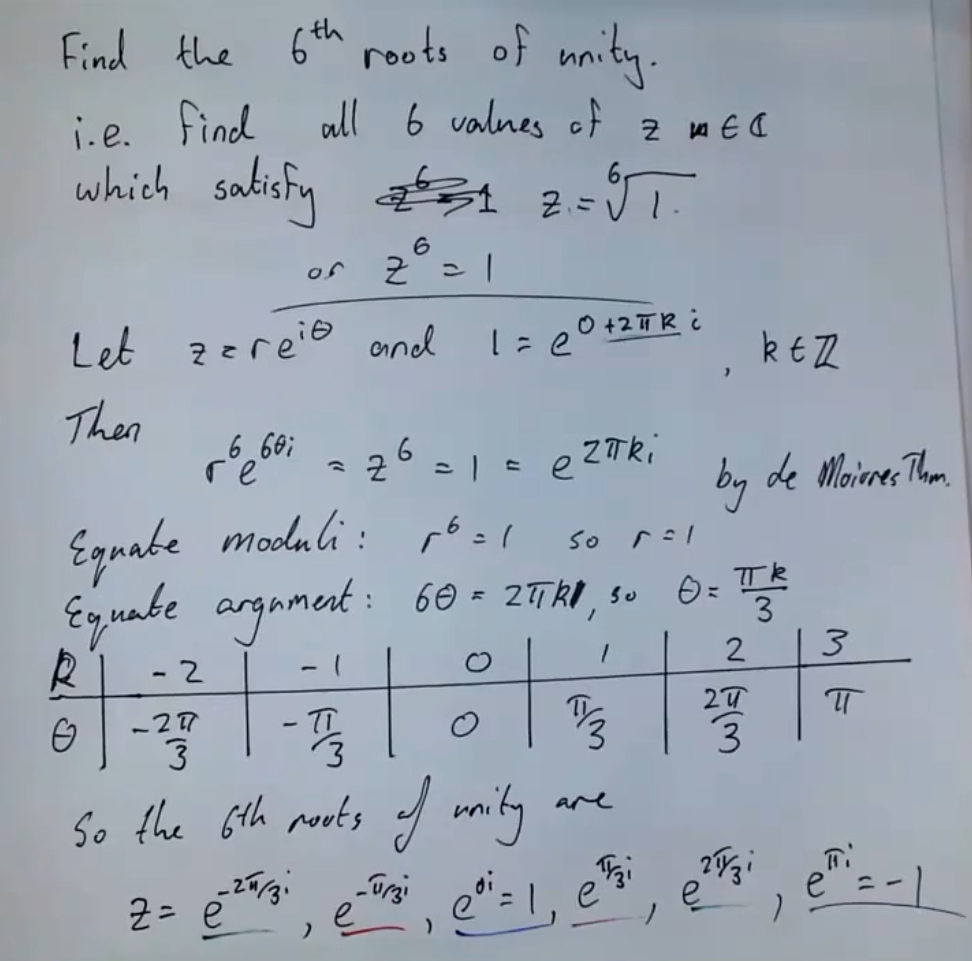 Find the 6th roots of unity.
i.e. find all 6 values of z ∈ ℂ
which satisfy z = ⁶√1.
or z⁶ = 1
Let z = re^{iθ} and 1 = e^{0+2πki}, k ∈ ℤ
Then
r⁶e^{6θi} = z⁶ = 1 = e^{2πki} by de Moivres Thm.
Equate moduli: r⁶ = 1 so r = 1
Equate argument: 6θ = 2πk, so θ = πk/3
k | -2 | -1 | 0 | 1 | 2 | 3
θ | -2π/3 | -π/3 | 0 | π/3 | 2π/3 | π
So the 6th roots of unity are
z = e^{-2π/3 i}, e^{-π/3 i}, e^{0i} = 1, e^{π/3 i}, e^{2π/3 i}, e^{πi} = -1